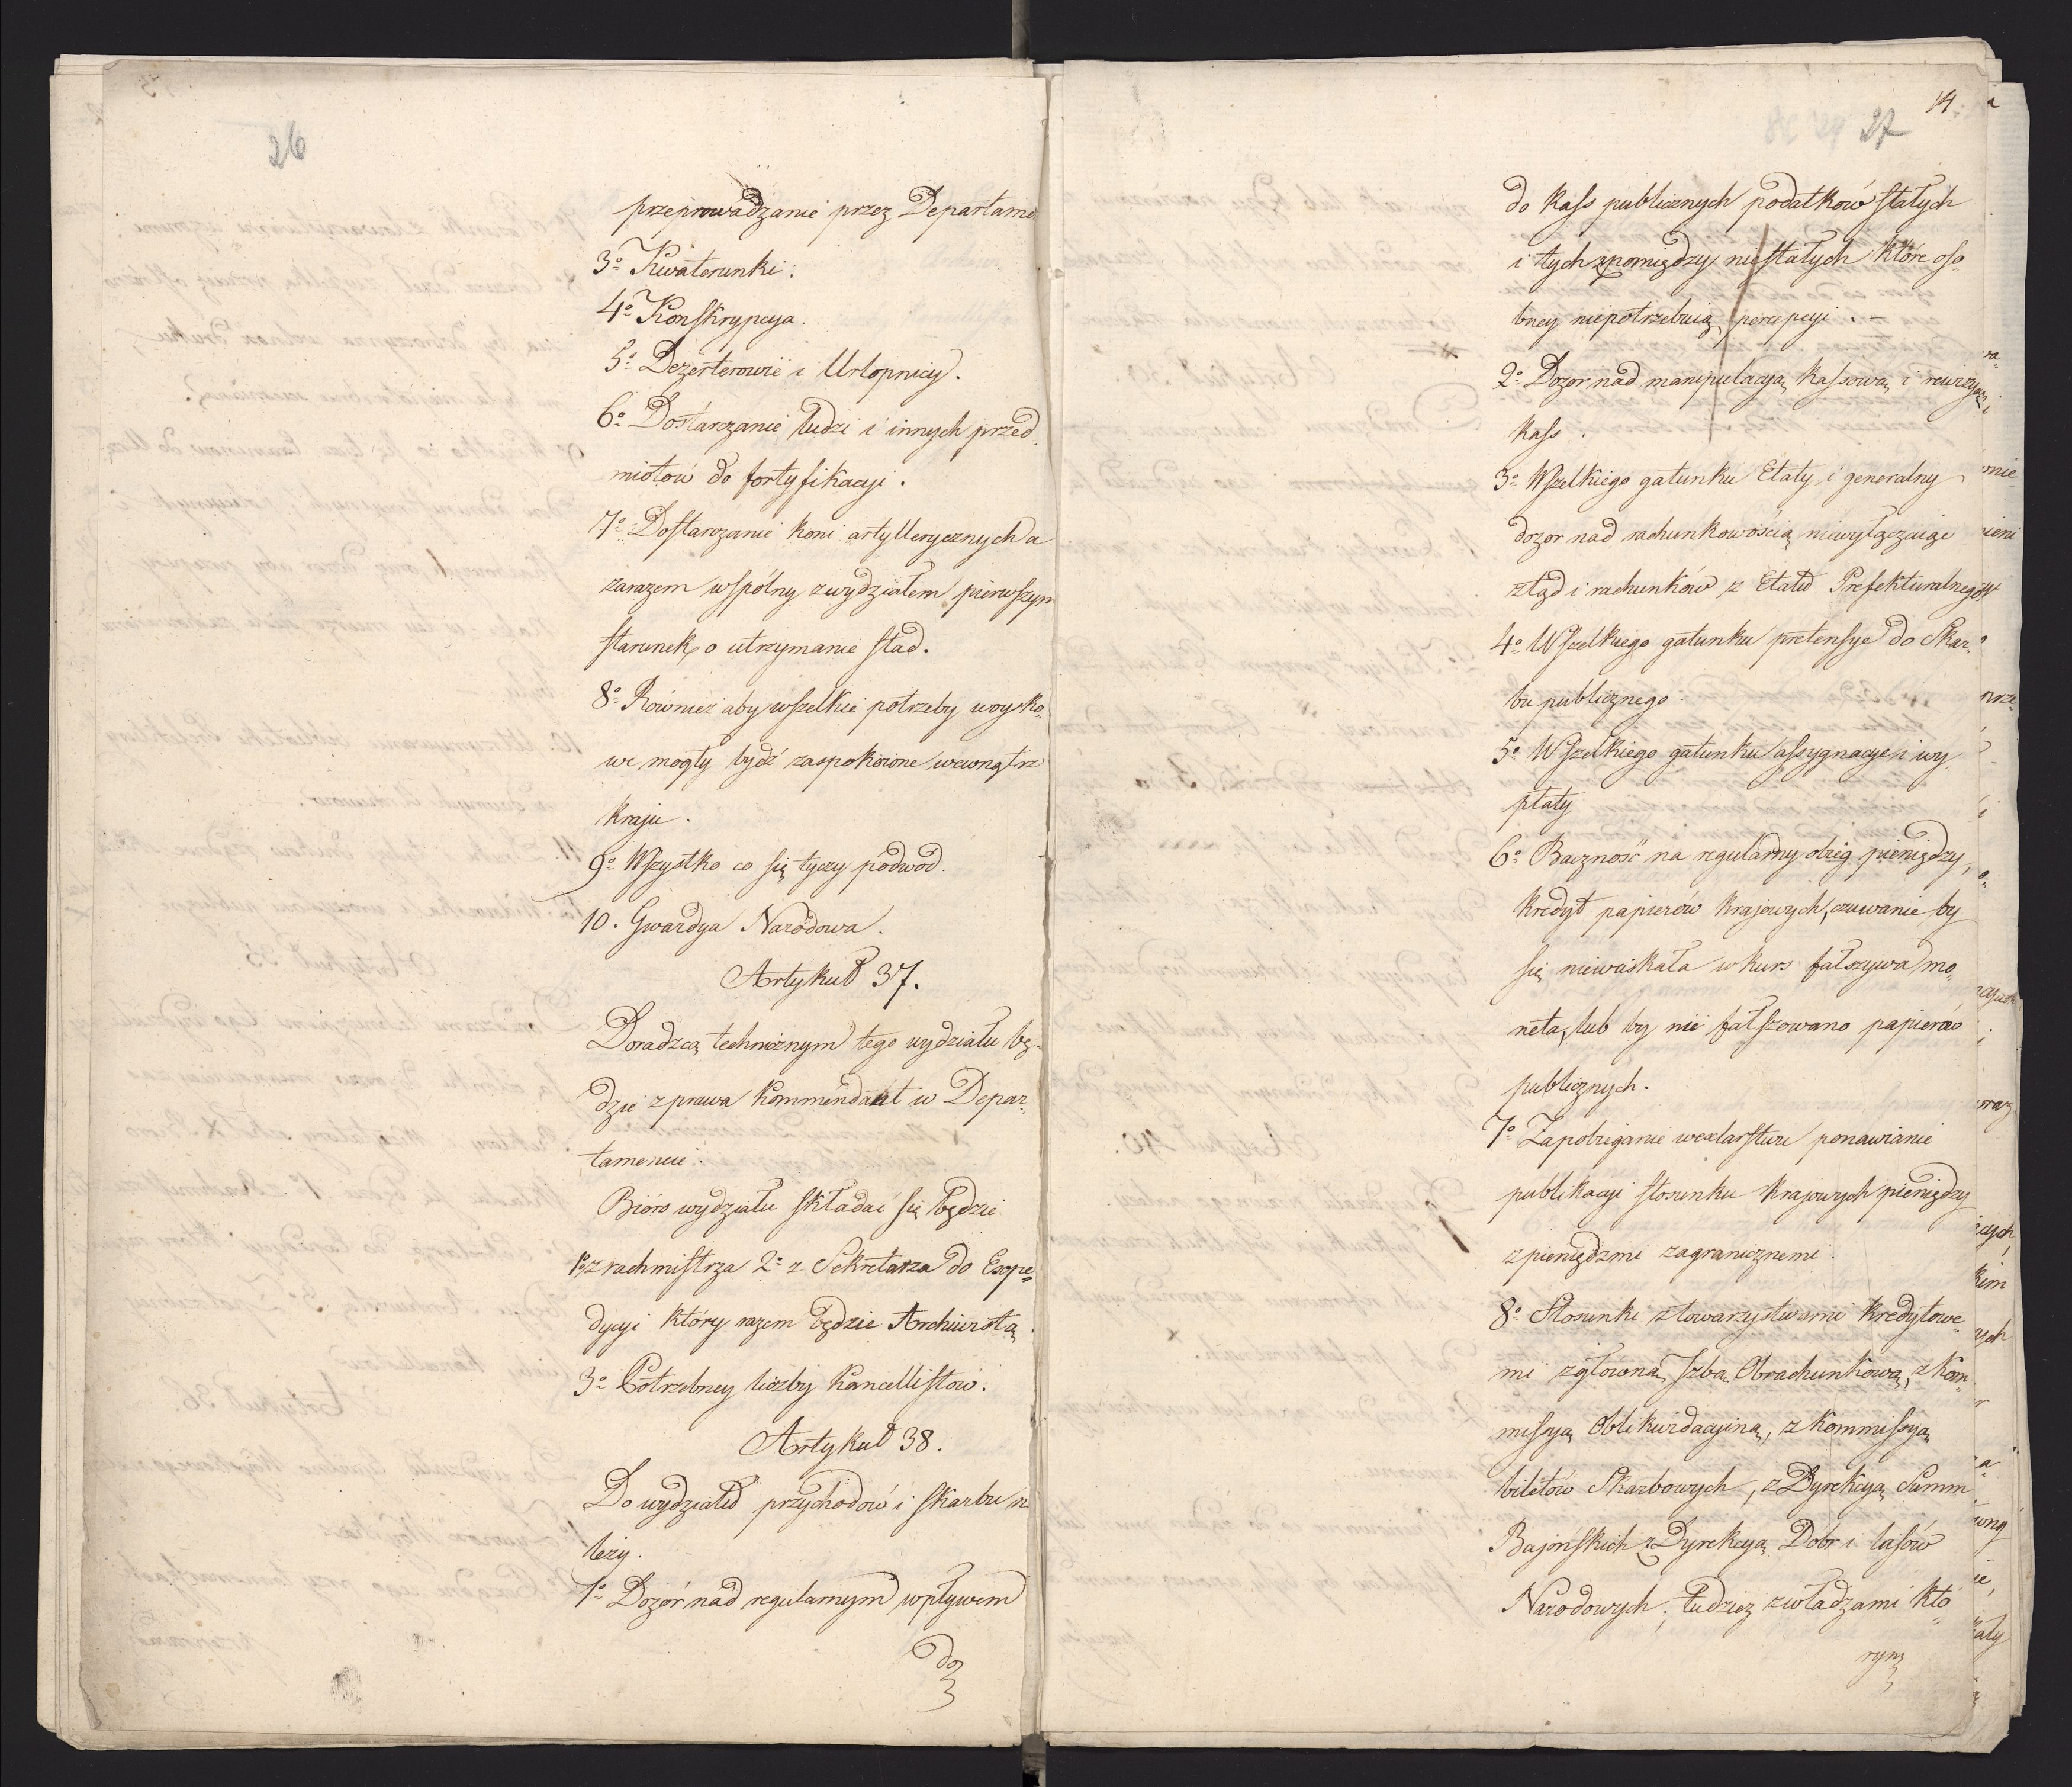 26
przeprowadzanie przez Departame
3o Kwaterunki.
4o Konskrypcya.
5o Dezerterowie i Urlopnicy.
6o Dostarczanie ludzi i innych przed
miotow do fortyfikacyi.
7o Dostarczanie koni artyllerycznych a
zarazem wspólny z wydziałem pierwszym
starunek o utrzymanie stad.
8o Również aby wszelkie potrzeby woysko,
we mogły bydź zaspokoione wewnątrz
kraju.
9o Wszystko co się tyczy podwod.
10. Gwardya Narodowa.
Artykuł 37.
Doradzcą technicznym tego wydziału bę-
dzie z prawa Kommendant w Depar-
tamencie.
Bióro wydziału składać się będzie
1o z rachmistrza 2o z Sekretarza do Expe=
dycyi który razem będzie Archiwistą.
3o Potrzebney liczby Kancellistow.
Artykuł 38.
Do wydziału przychodów i skarbu n
leży.
1o Dozór nad regularnym wpływem
do
14
27
do kass publicznych podatków stałych
i tych zpomiędzy niestałych które oso
bney niepotrzebuią percepcyi.
2o Dozor nad manipulacyą kassową i rewizya
kass.
3o Wszelkiego gatunku Etaty i generalny
dozor nad rachunkowością niewyłączaiąc
ztąd i rachunków z Etatu Prefekturalnego
4o Wszelkiego gatunku pretensye do Skar-
bu publicznego.
5o Wszelkiego gatunku assygnacye i wy
płaty
6o Baczność na regularny obieg pieniędzy,
kredyt papierów krajowych, czuwanie by
się niewciskała w kurs fałszywa mo,
neta, lub by nie fałszowano papierów
publicznych.
7o Zapobieganie wexlarstwu ponawianie
publikacyi stosunku krajowych pieniędzy
z pieniędzmi zagranicznemi.
8o Stosunki z towarzystwami kredytowe
mi z główną Izbą Obrachunkową, z Kom-
missyą Oblikwidacyiną, z Kommissyą
biletów Skarbowych, z Dyrekcyą Summ
Bajońskich z Dyrekcyą Dobr i lasów
Narodowych, tudzież z władzami któ
rym